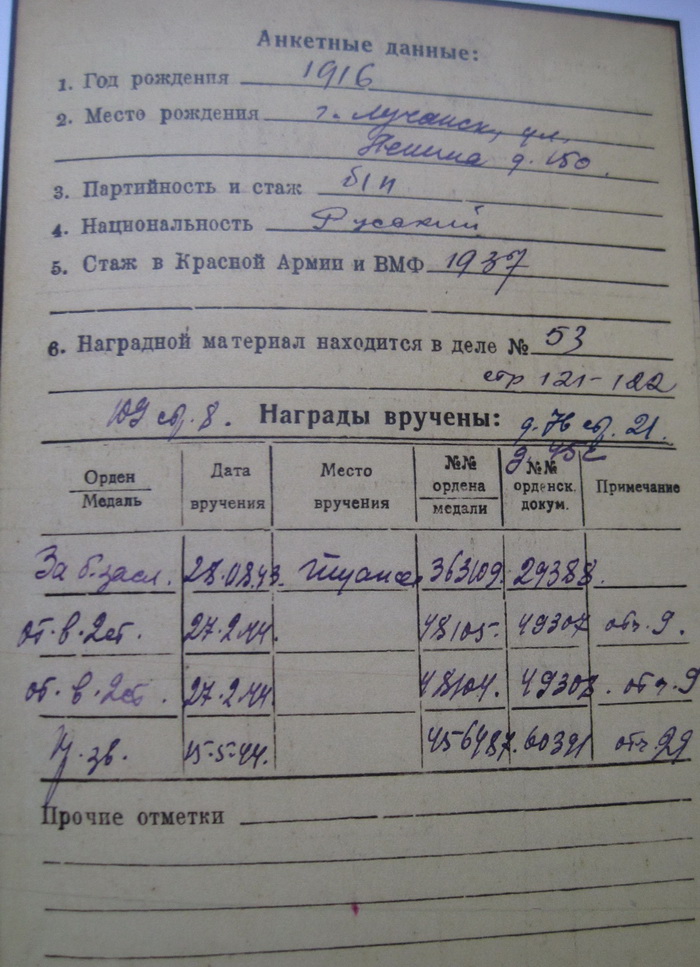 Анкетные данные:
1. Год рождения 1916
2. Место рождения г. Луганск, ул.
Ленина д. 150.
3. Партийность и стаж б/п
4. Национальность Русский
5. Стаж в Красной Армии и ВМФ 1937
6. Наградной материал находится в деле № 53
стр 121-122
стр. 8. Награды вручены: д. 76 стр. 21.
Орден Медаль Дата вручения Место вручения №№ ордена медали №№ орденск. докум. Примечание
За б. засл. 28.08.43. 363109. 29388.
от. в. 2ст. 27.2.44 48105. 49307 отч. 9.
от. в. 2ст. 27.2.44 48104. 49308. отч. 9
Кр. зв. 15.5.44. 456487. 60391 отч. 29
Прочие отметки